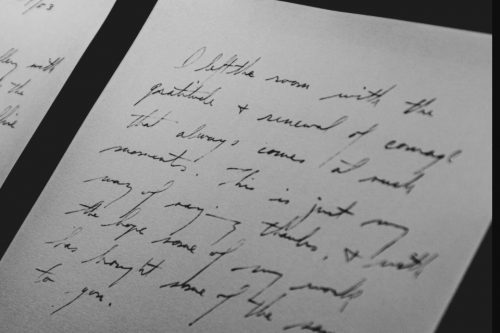 /03
with
the
I left the room with the
gratitude & renewal of courage
that always comes at such
moments. This is just my
way of saying thanks, & with
the hope some of my work
has brought some of the
to you.